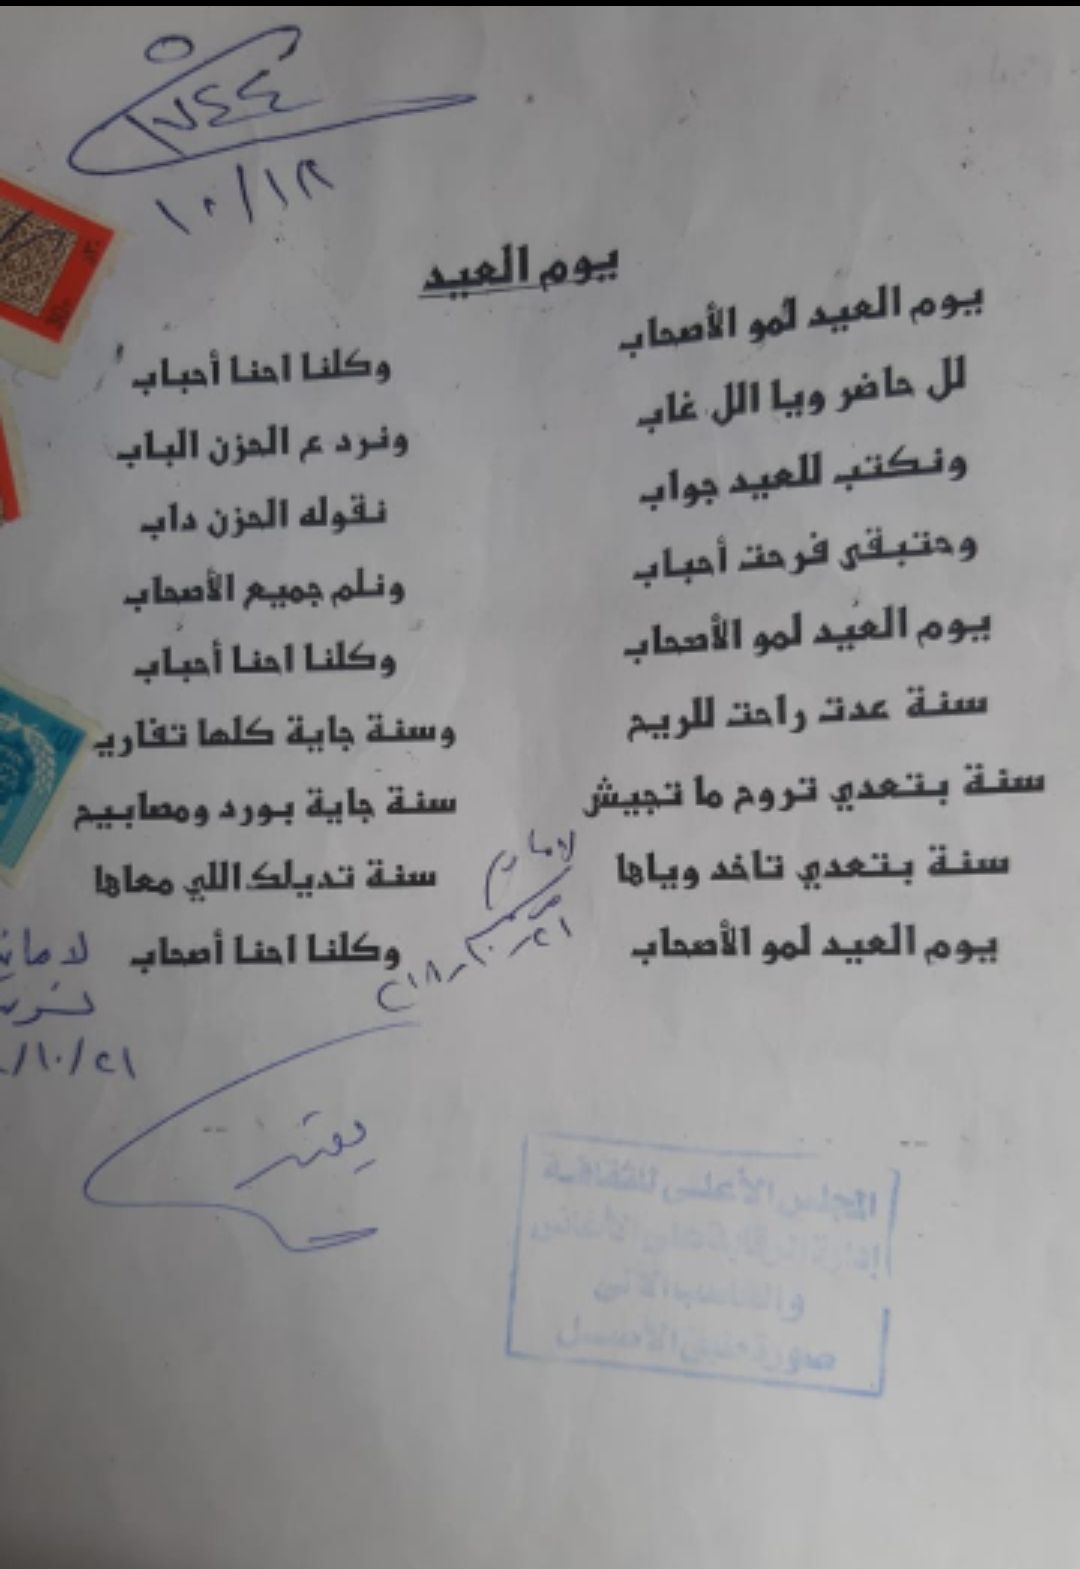 ٧٤٤
١٠/١٢
يوم العيد
يوم العيد لمو الأصحاب وكلنا احنا أحباب
لل حاضر ويا الل غاب ونرد ع الحزن الباب
ونكتب للعيد جواب نقوله الحزن داب
وحتبقى فرحت أحباب ونلم جميع الأصحاب
يوم العيد لمو الأصحاب وكلنا احنا أحباب
سنة عدت راحت للريح وسنة جاية كلها تفاريـ
سنة بتعدي تروح ما تجيش سنة جاية بورد ومصابيح
سنة بتعدي تاخد وياها سنة تديلك اللي معاها
يوم العيد لمو الأصحاب وكلنا احنا أصحاب
لا مانع
٢١
لا مانـ
/١٠/٢١
يعتمد
المجلس الأعلى للثقافة
إدارة الرقابة على الأغانى
صورة طبق الأصل